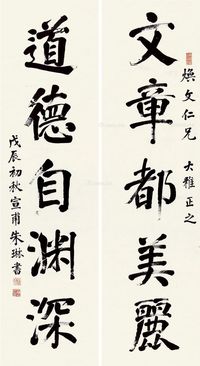 文章都美麗
煥文仁兄 大雅正之
道德自淵深
戊辰初秋宣甫朱琳書